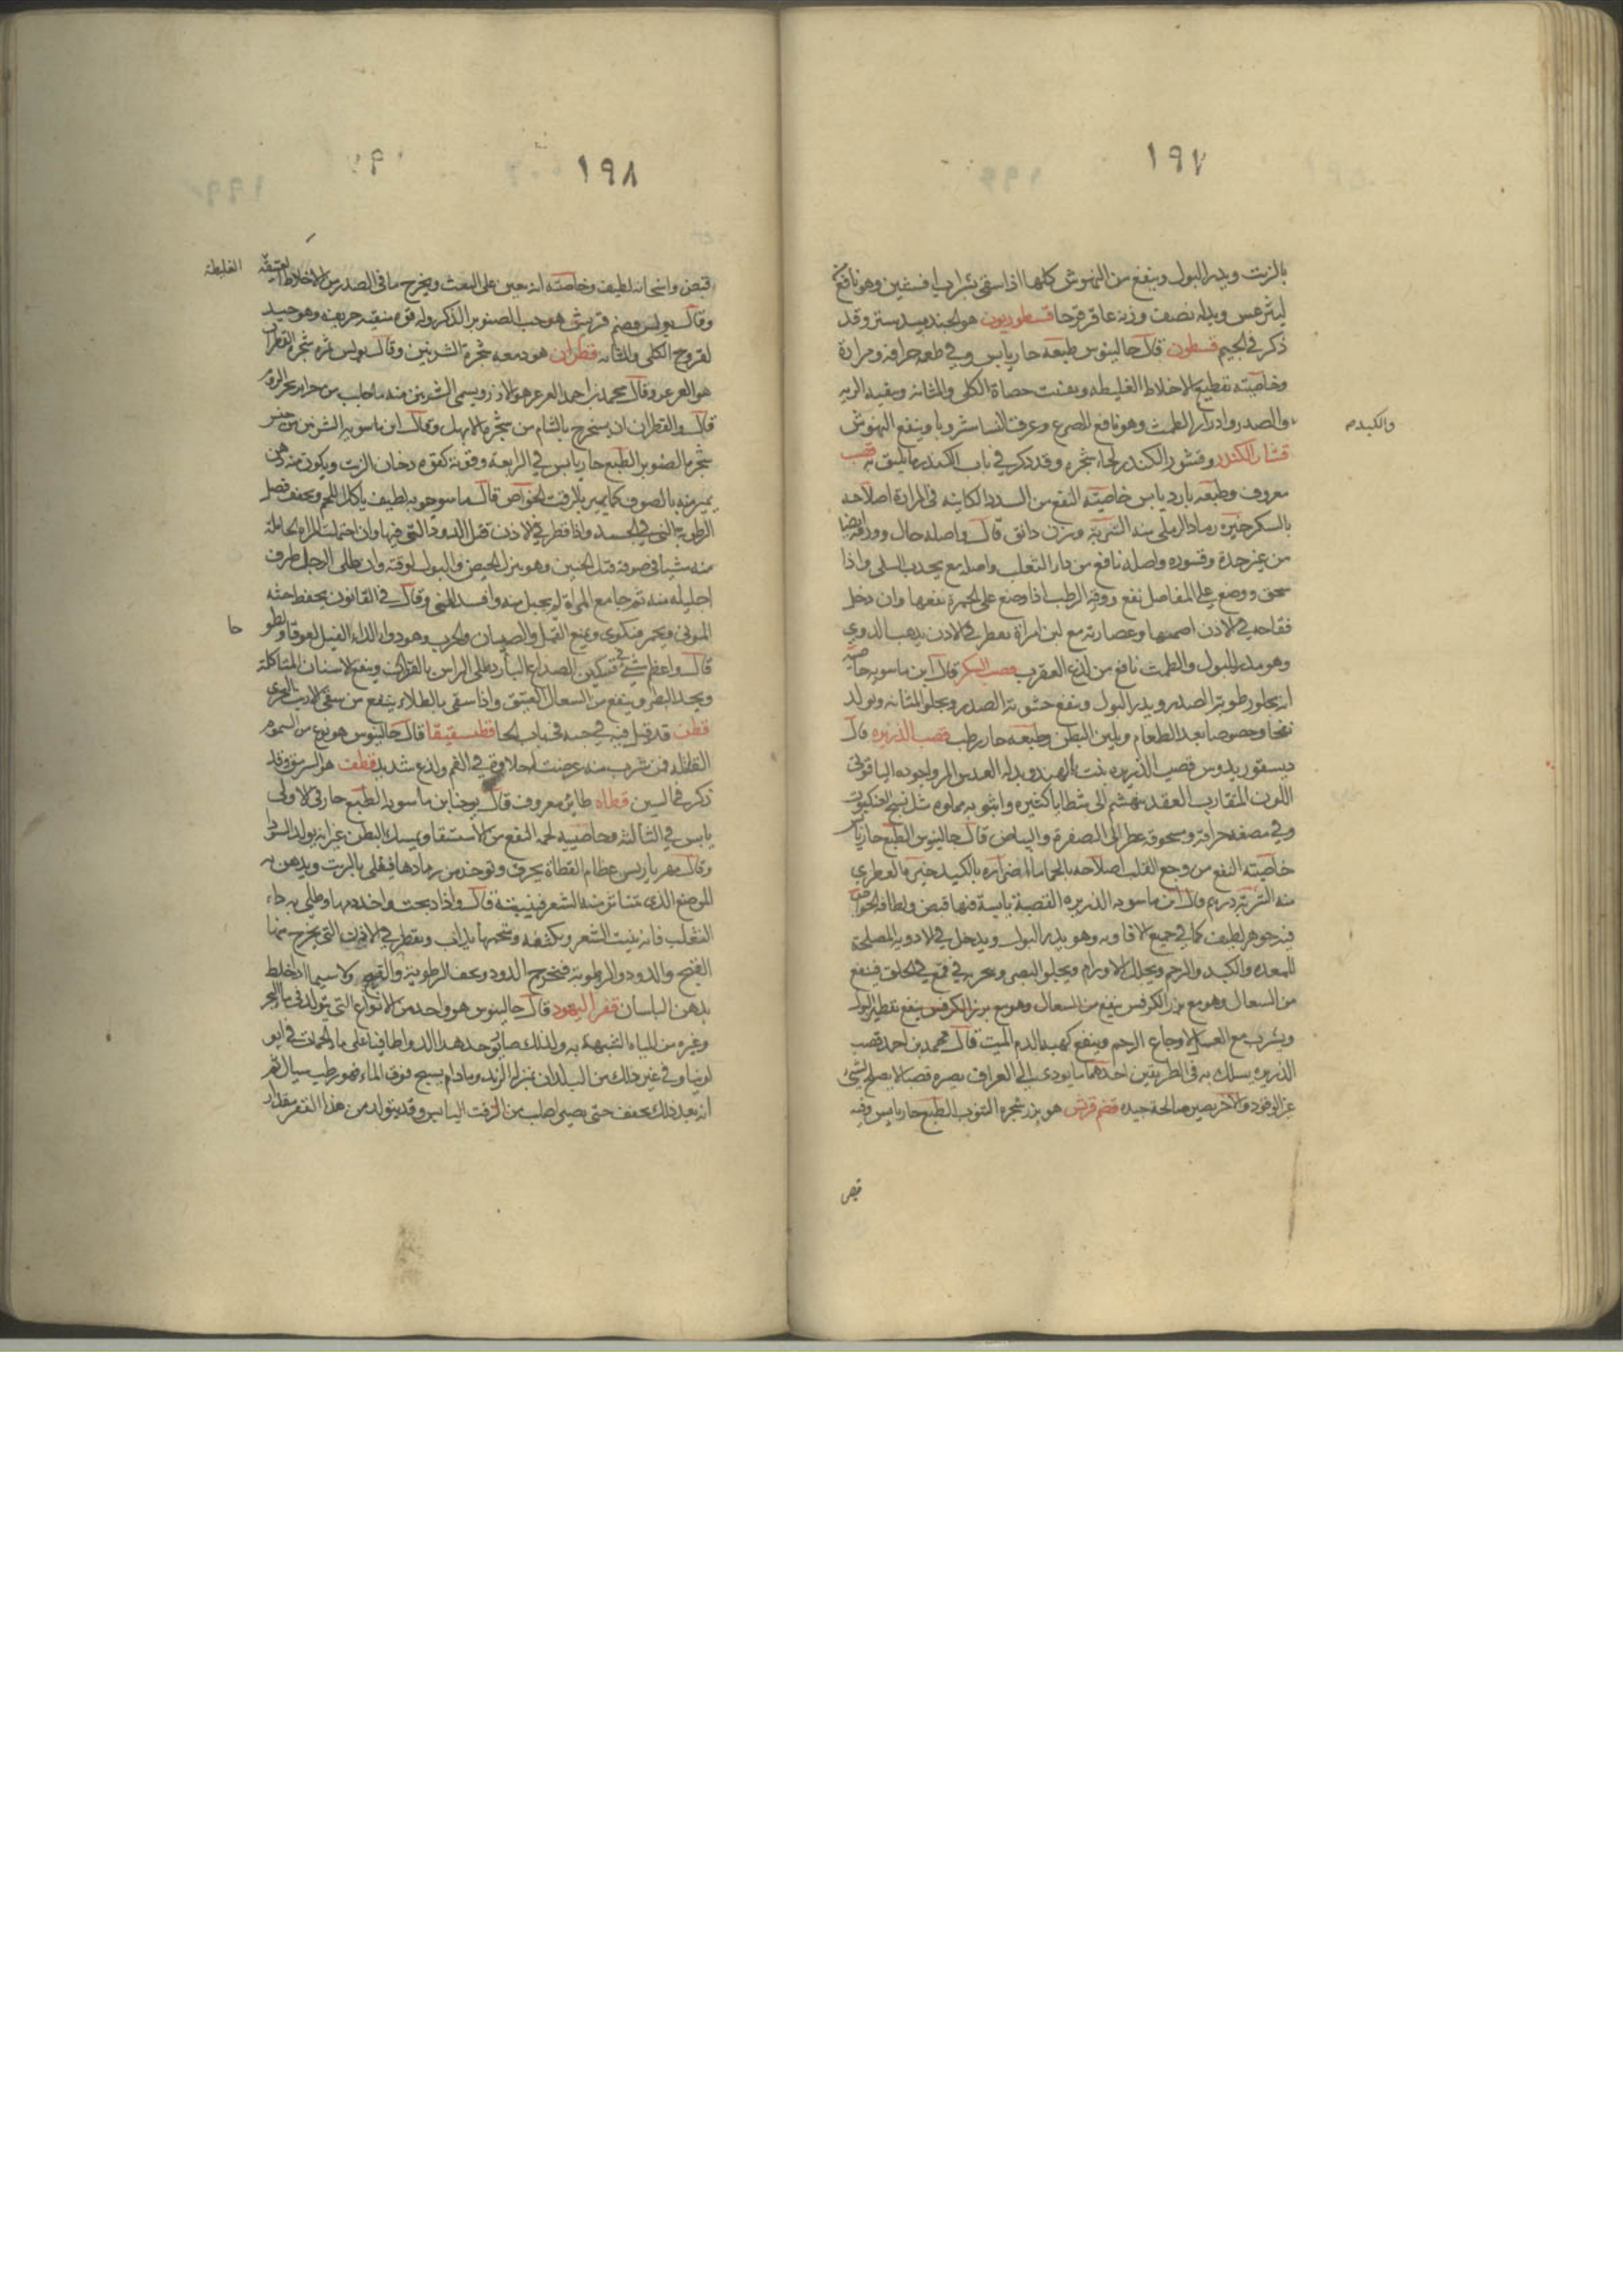 ١٩٧
بالزيت ويدر البول وينفع من النهوش كلها اذا سقى بشراب افسنتين وهو نافع
وبدله نصف وزنه عاقرقرحا قسطوريون هو الجندبيدستر وقد
ذكر في الجيم قسطون قال جالينوس طبعه حار يابس وفي طعمه حرافة ومرارة
وخاصيته تقطيع الاخلاط الغليظه ويفتت حصاة الكلى والمثانه وينقيه الريه
والصدر وادرار الطمث وهو نافع للصرع وعرق النسا شروبا وينفع النهوش
والكبد صح
قشار الكندر وقشور الكندر لحاء شجره وقد ذكر في باب الكندر ما يليق به قصب
معروف وطبعه بارد يابس خاصيته النفع من السدد الكاينه في المرارة اصلاحه
بالسكر خيره رماد الرملى منه الشربة وزن دانق قال واصله حال وورقه ايضا
من غير حدة وقشوره واصله نافع من دار الثعلب واصله مع يجذب السلى واذا
سحق ووضع على المفاصل نفع وورقه الرطب اذا وضع على الحمرة نفعها وان دخل
فقاحه في الاذن اصمها وعصارته مع لبن امراة يقطر في الاذن يذهب الدوي
وهو مدر للبول والطمث نافع من لدغ العقرب قصب السكر قال ابن ماسويه خاصيته
انه يجلو رطوبة الصدر ويدر البول وينفع خشونة الصدر ويجلو المثانه ويولد
نفخا وخصوصا بعد الطعام ويلين البطن وطبعه حار رطب قصب الذريره قال
ديسقوريدوس قصب الذريره نبت بالهند وبدله العدس المر واجوده الياقوتى
اللون المتقارب العقد يتهشم الى شظايا كثيره وانبوبه مملوه مثل نسج العنكبوت
وفي مضغه حرافة ومسحوقه عطر الى الصفرة والبياض قال جالينوس الطبع حار يابس
خاصيته النفع من وجع القلب اصلاحه بالحماما لمضرته بالكبد خيره العطري
منه الشربة درهم قال ابن ماسويه الذريره القصبة يابسة فيها قبض ولطافه الخواص
فيه جوهر لطيف كما في جميع الافاويه وهو يدر البول ويدخل في الادوية المصلحة
للمعده والكبد والرحم ويحلل الاورام ويجلو البصر وبخره في قمع في الحلق فينفع
من السعال وهو مع بزر الكرفس ينفع من السعال وهو مع بزر الكرفس ينفع تقطير البول
ويشرب مع العسل لاوجاع الرحم وينفع كهبه الدم الميت قال محمد بن احمد قصب
الذريره يسلك به في الطريقين احدهما يودى الى العراق يصيره قصبا لا يصلح لشئ
غير الوقود والاخر يصير صالحة جيده قضم قريش هو بزر شجره التنوب الطبع حار يابس وفيه
قبض
١٩٨
قبض واسخانه لطيف وخاصيته انه يعين على النفث ويخرج ما في الصدر من الاخلاط العتيقه
الغليظه
وقال بولس قضم قريش هو حب الصنوبر الذكر وله قوه منقيه حريفه وهو جيد
لقروح الكلى والمثانه قطران هو دمعه شجرة الشربين وقال بولس ثمره شجره القطران
هو العرعر وقال محمد بن احمد العرعر هو الارز ويسمى الشربين منه ما جلب من جزاير بحر الروم
قال والقطران ان يستخرج بالشام من شجره الابهل وقال ابن ماسويه الشربين من جنس
شجره الصنوبر الطبع حار يابس في الرابعة وقوته كقوه دخان الزيت ويكون منه دهن
يميز منه بالصوف كما يميز بالزفت الخواص قال ماسرجويه لطيف ياكل اللحم ويجفف فضل
الرطوبة التي في الجسد واذا قطر في الاذن قتل الدود التي فيها وان احتملت المراه الحامله
منه شيئا في صوفة قتل الجنين وهو ينزل الحيض والبول لوقته وان طلى الرجل طرف
احليله منه ثم جامع المراة لم يحبل منه وافسد المنى وقال في القانون يحفظ جثه
الموتى ويحمر فيكوى ويمنع القمل والصيبان والجرب وهو دواء لداء الفيل لعوقا ولطو
حا
قال واعظم شئ في تسكين الصداع البارد طلى الراس بالقطران وينفع الاسنان المتاكلة
ويحد البصر وينفع من السعال العتيق واذا سقى بالطلاء ينفع من سقى الارنب البحرى
قطن قد قيل فيه في حبه في باب الحا قطسيقيقا قال جالينوس هو نوع من السموم
القتاله فمن شرب منه عرضت له حلاوة في الفم ولذع شديد قطف هو السرمق وقد
ذكر في السين قطاه طائر معروف قال يوحنا بن ماسويه الطبع حار في الاولى
يابس في الثالثه وخاصيته لحمه النفع من الاستسقا ويمسك البطن غير انه يولد السودا
وقال مهرياريس عظام القطاة يحرق وتوخذ من رمادها فيغلى بالزيت ويدهن به
الموضع الذى تناثر منه الشعر فينبته قال واذا ذبحت واخذ دمها وطلى به داء
الثعلب فانه ينبت الشعر ويكثفه وشحمها يذاب ويقطر في الاذن التي يخرج منها
القيح والدود والرطوبة فتخرج الدود وتجفف الرطوبة والقيح ولا سيما اذا خلط
بدهن البلسان قفر اليهود قال جالينوس هو واحد من الانواع التي يتولد في ماء البحر
وغيره من المياه الشبيهة به ولذلك صار يوجد هذا الدوا طافيا على ماء الحمات في
لونيا وفي غير ذلك من البلدان بمنزلة الزبد وما دام يسبح فوق الماء فهو رطب سيال ثم
انه بعد ذلك يجفف حتى يصير اصلب من الزفت اليابس وقد يتولد من هذا القفر مقدار